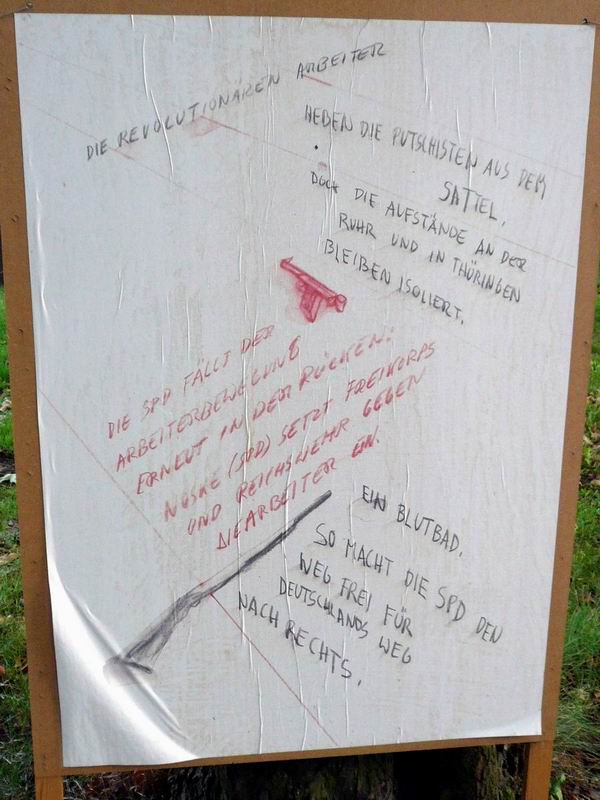 DIE REVOLUTIONÄREN ARBEITER
HEBEN DIE PUTSCHISTEN AUS DEM
SATTEL,
DOCH DIE AUFSTÄNDE AN DER
RUHR UND IN THÜRINGEN
BLEIBEN ISOLIERT.
DIE SPD FÄLLT DER
ARBEITERBEWEGUNG
ERNEUT IN DEN RÜCKEN:
NOSKE (SPD) SETZT FREIKORPS
UND REICHSWEHR GEGEN
DIE ARBEITER EIN.
EIN BLUTBAD.
SO MACHT DIE SPD DEN
WEG FREI FÜR
DEUTSCHLANDS WEG
NACH RECHTS.